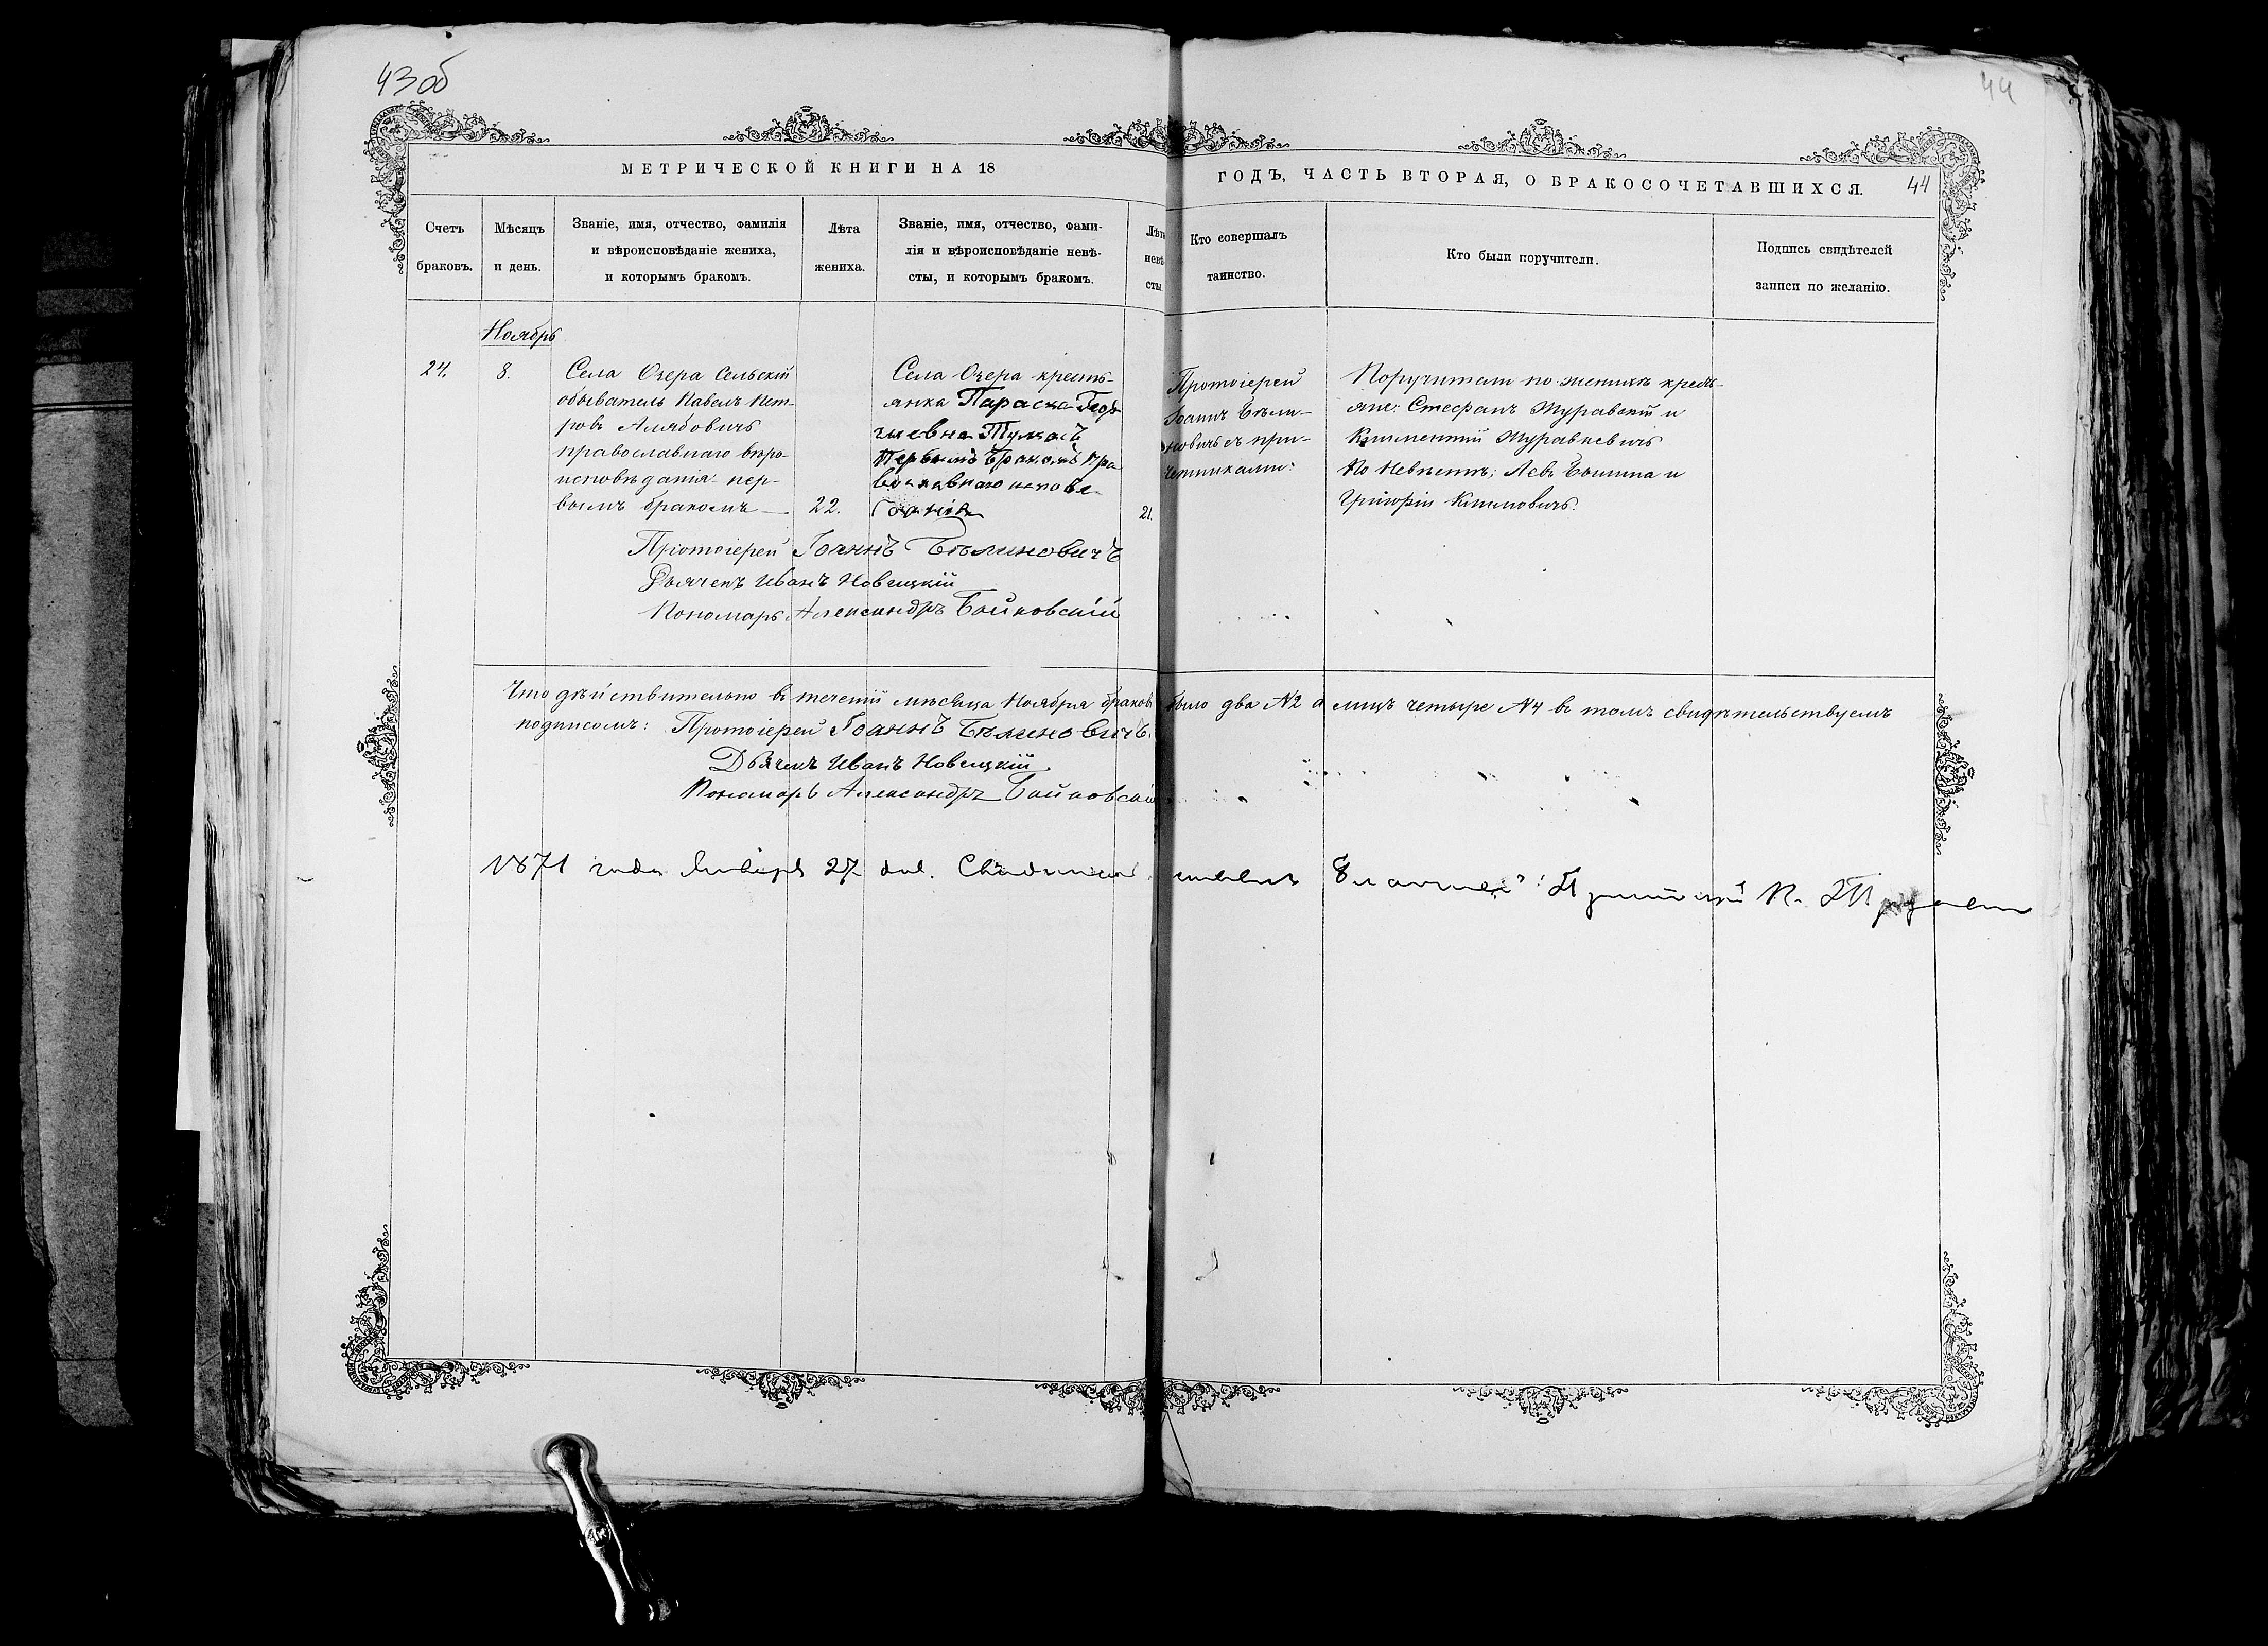 43об
44
МЕТРИЧЕСКОЙ КНИГИ НА 18
ГОДЪ, ЧАСТЬ ВТОРАЯ, О БРАКОСОЧЕТАВШИХСЯ.
44
Счетъ
браковъ.
Мѣсяцъ
и день.
Званіе, имя, отчество, фамилія
и вѣроисповѣданіе жениха,
и которымъ бракомъ.
Лѣта
жениха.
Званіе, имя, отчество, фами-
лія и вѣроисповѣданіе невѣ-
сты, и которымъ бракомъ.
Лѣта
невѣ
сты.
Кто совершалъ
таинство.
Кто были поручители.
Подпись свидѣтелей
записи по желанію.
Ноябрь
24.
8.
Села Озера Сельскій
обыватель Павелъ Пет-
ровъ Алябовичъ
православнаго вѣро-
исповѣданія пер-
вымъ бракомъ
22.
Села Озера кресть-
янка Параска Геор
гиевна
Первымъ Бракомъ Пра
вославнаго испове
даніа
21.
Протоіерей
Іоаннъ Бѣли-
новичъ съ при-
четниками:
Поручители по женихѣ кресть-
яне: Стефанъ Журавскій и
Климентій Журавкевичъ
По Невѣстѣ; Левъ и
Григорій Климовичъ.
Протоіерей Іоаннъ Бѣлиновичъ
Дьячекъ Иванъ Новицкій
Пономарь Александръ Бойковскій
Что дѣйствительно въ теченіи мѣсяца Ноября браковъ было два №2 а лицъ четыре №4 въ томъ свидѣтельствуемъ
подписомъ: Протоіерей Іоаннъ Бѣлиновичъ.
Дьячекъ Иванъ Новицкій
Пономарь Александръ Бойковскій
1871 года Января 27 дня.